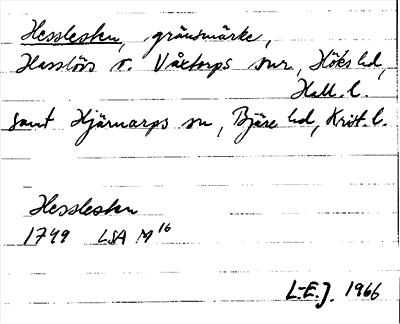 Hesslesten, gränsmärke,
Hasslövs o. Våxtorps snr, Höks hd,
Hall. l.
samt Hjärnarps sn, Bjäre hd, Krist. l.
Hesslesten
1749 LSA M 16
L-E.J. 1966